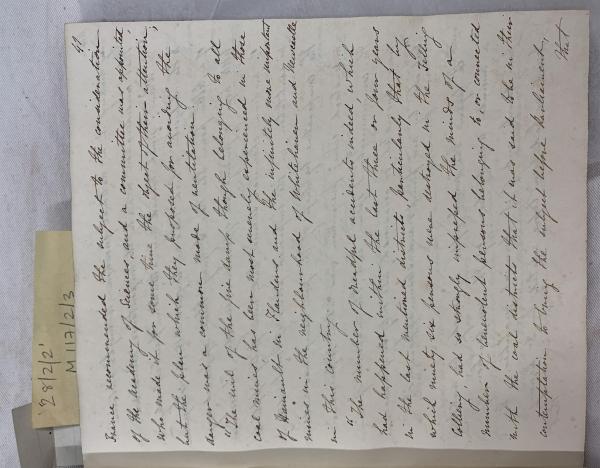 41
France, recommended the subject to the consideration
of the Academy of Sciences, and a committee was appointed,
who made it for some time the object of their attention;
but the plan which they proposed for avoiding the
danger was a common mode of ventilation.
"The evil of the fire damp though belonging to all
coal mines has been most annuely experienced in those
of Hainault in Flanders and the infinitely more important
mines in the neighbourhood of Whitehaven and Newcastle
in this country.
"The number of dreadful accidents indeed, which
had happened within the last three or four years
in the last mentioned districts, particularly that by
which ninety six persons were destroyed in the Felling
Colliery, had so strongly impressed the minds of a
number of benevolent persons belonging to, or connected
with the coal districts that it was said to be in their
contemplation to bring the subject before Parliament,
that
28/2/2'
M 117/2/3